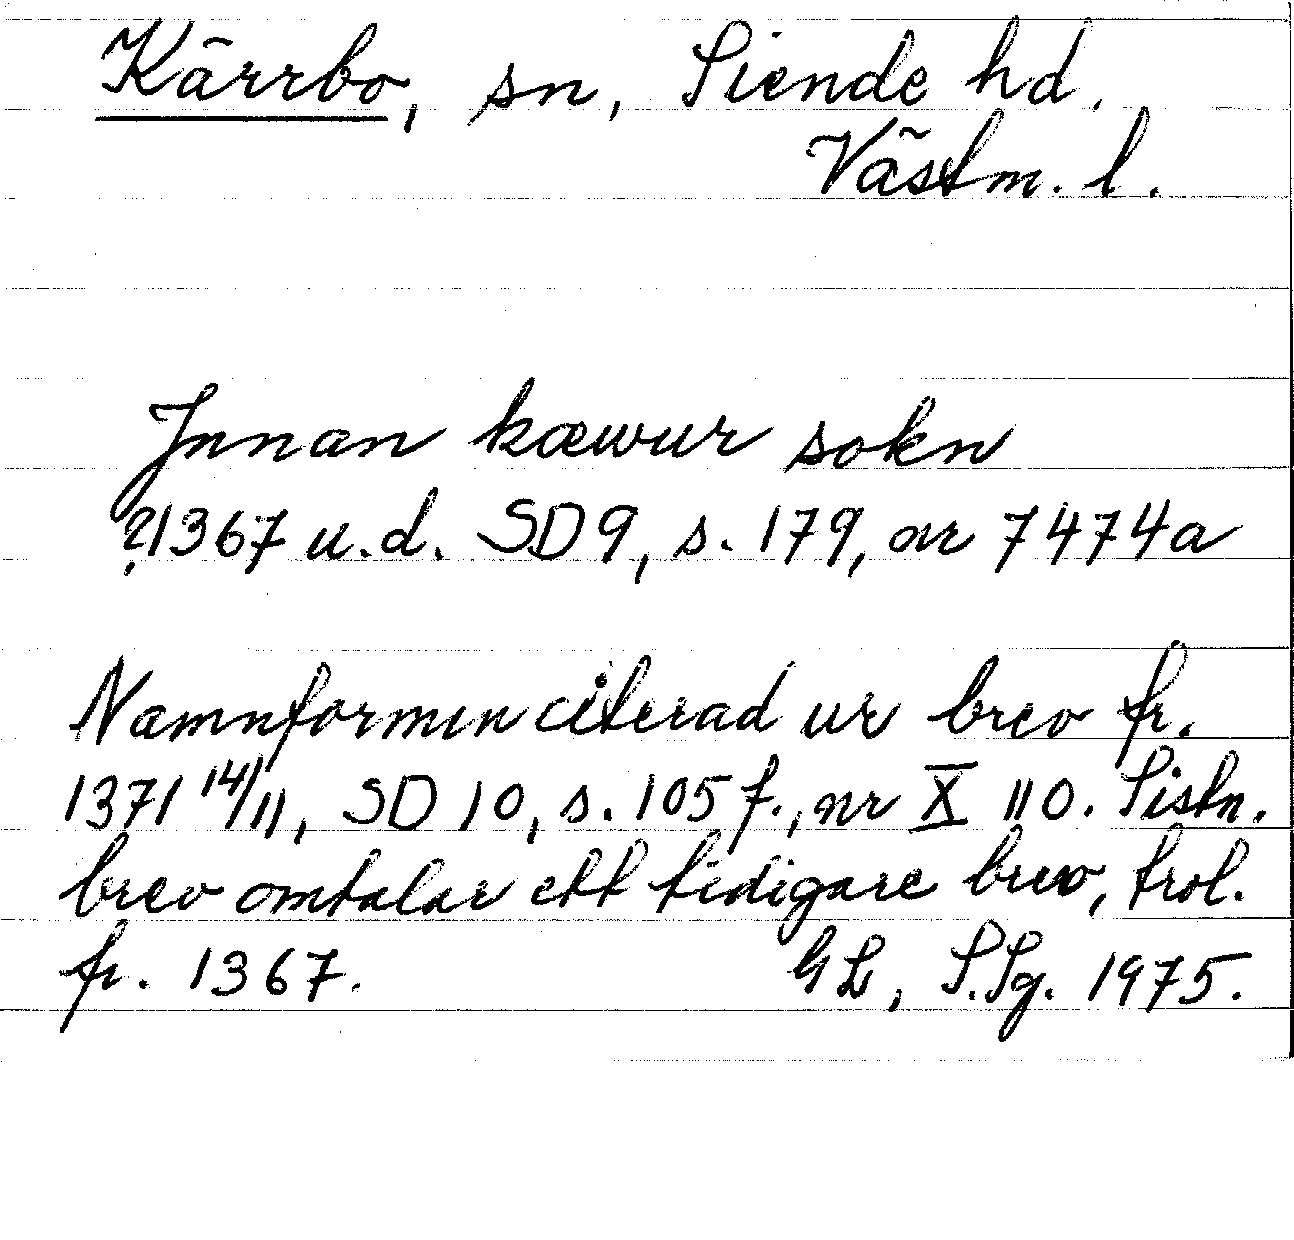 Kärrbo, sn, Siende hd.
Västm. l.
Jnnan kæwur sokn
?1367 u.d. SD9, s. 179, nr 7474a
Namnformen citerad ur brev fr.
1371 14/11, SD 10, s. 105 f., nr X 110. Sistn.
brev omtalar ett tidigare brev, trol.
fr. 1367. GL, S.Sg. 1975.